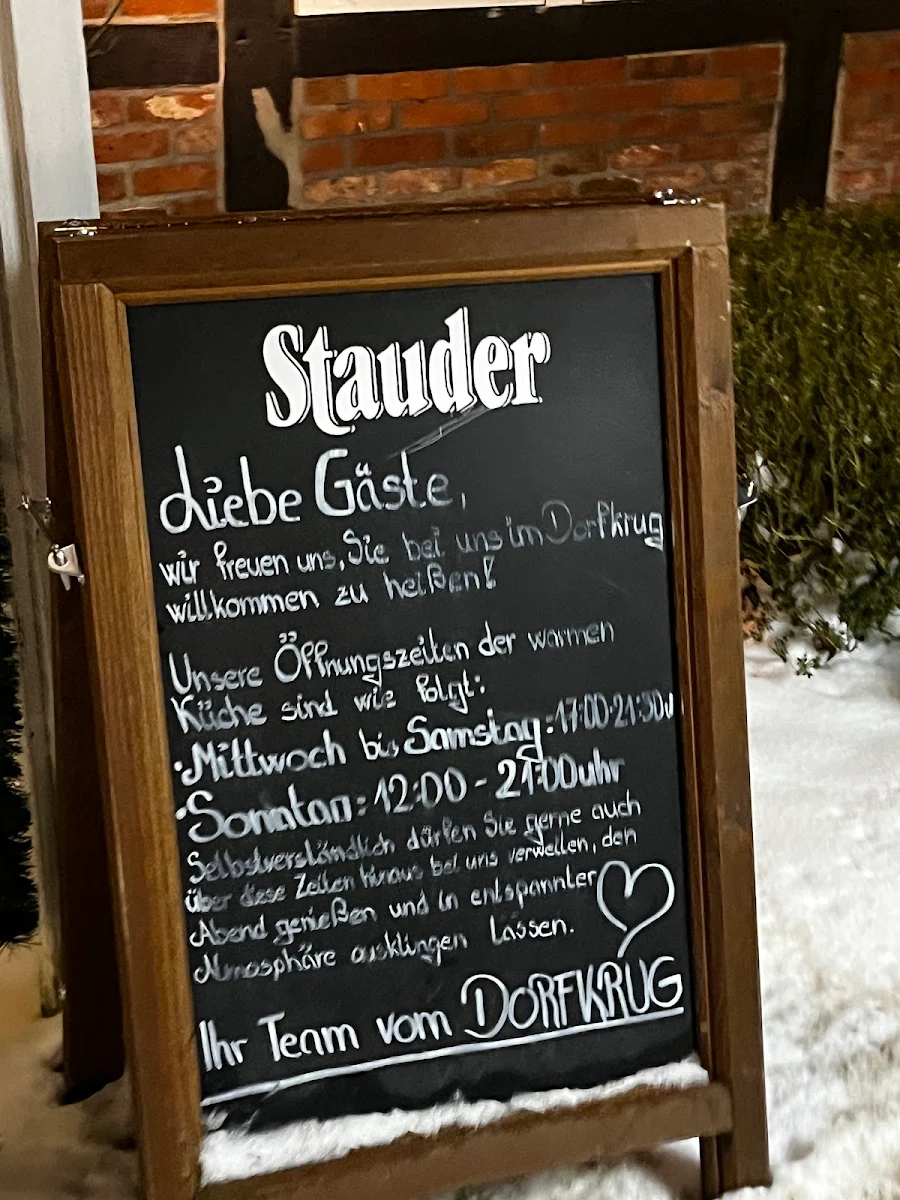 Stauder
Liebe Gäste,
wir freuen uns, Sie bei uns im Dorfkrug
willkommen zu heißen!
Unsere Öffnungszeiten der warmen
Küche sind wie folgt:
• Mittwoch bis Samstag: 17:00-21:30U
• Sonntag: 12:00 - 21:00uhr
Selbstverständlich dürfen Sie gerne auch
über diese Zeiten hinaus bei uns verweilen, den
Abend genießen und in entspannter
Atmosphäre ausklingen lassen.
Ihr Team vom DORFKRUG